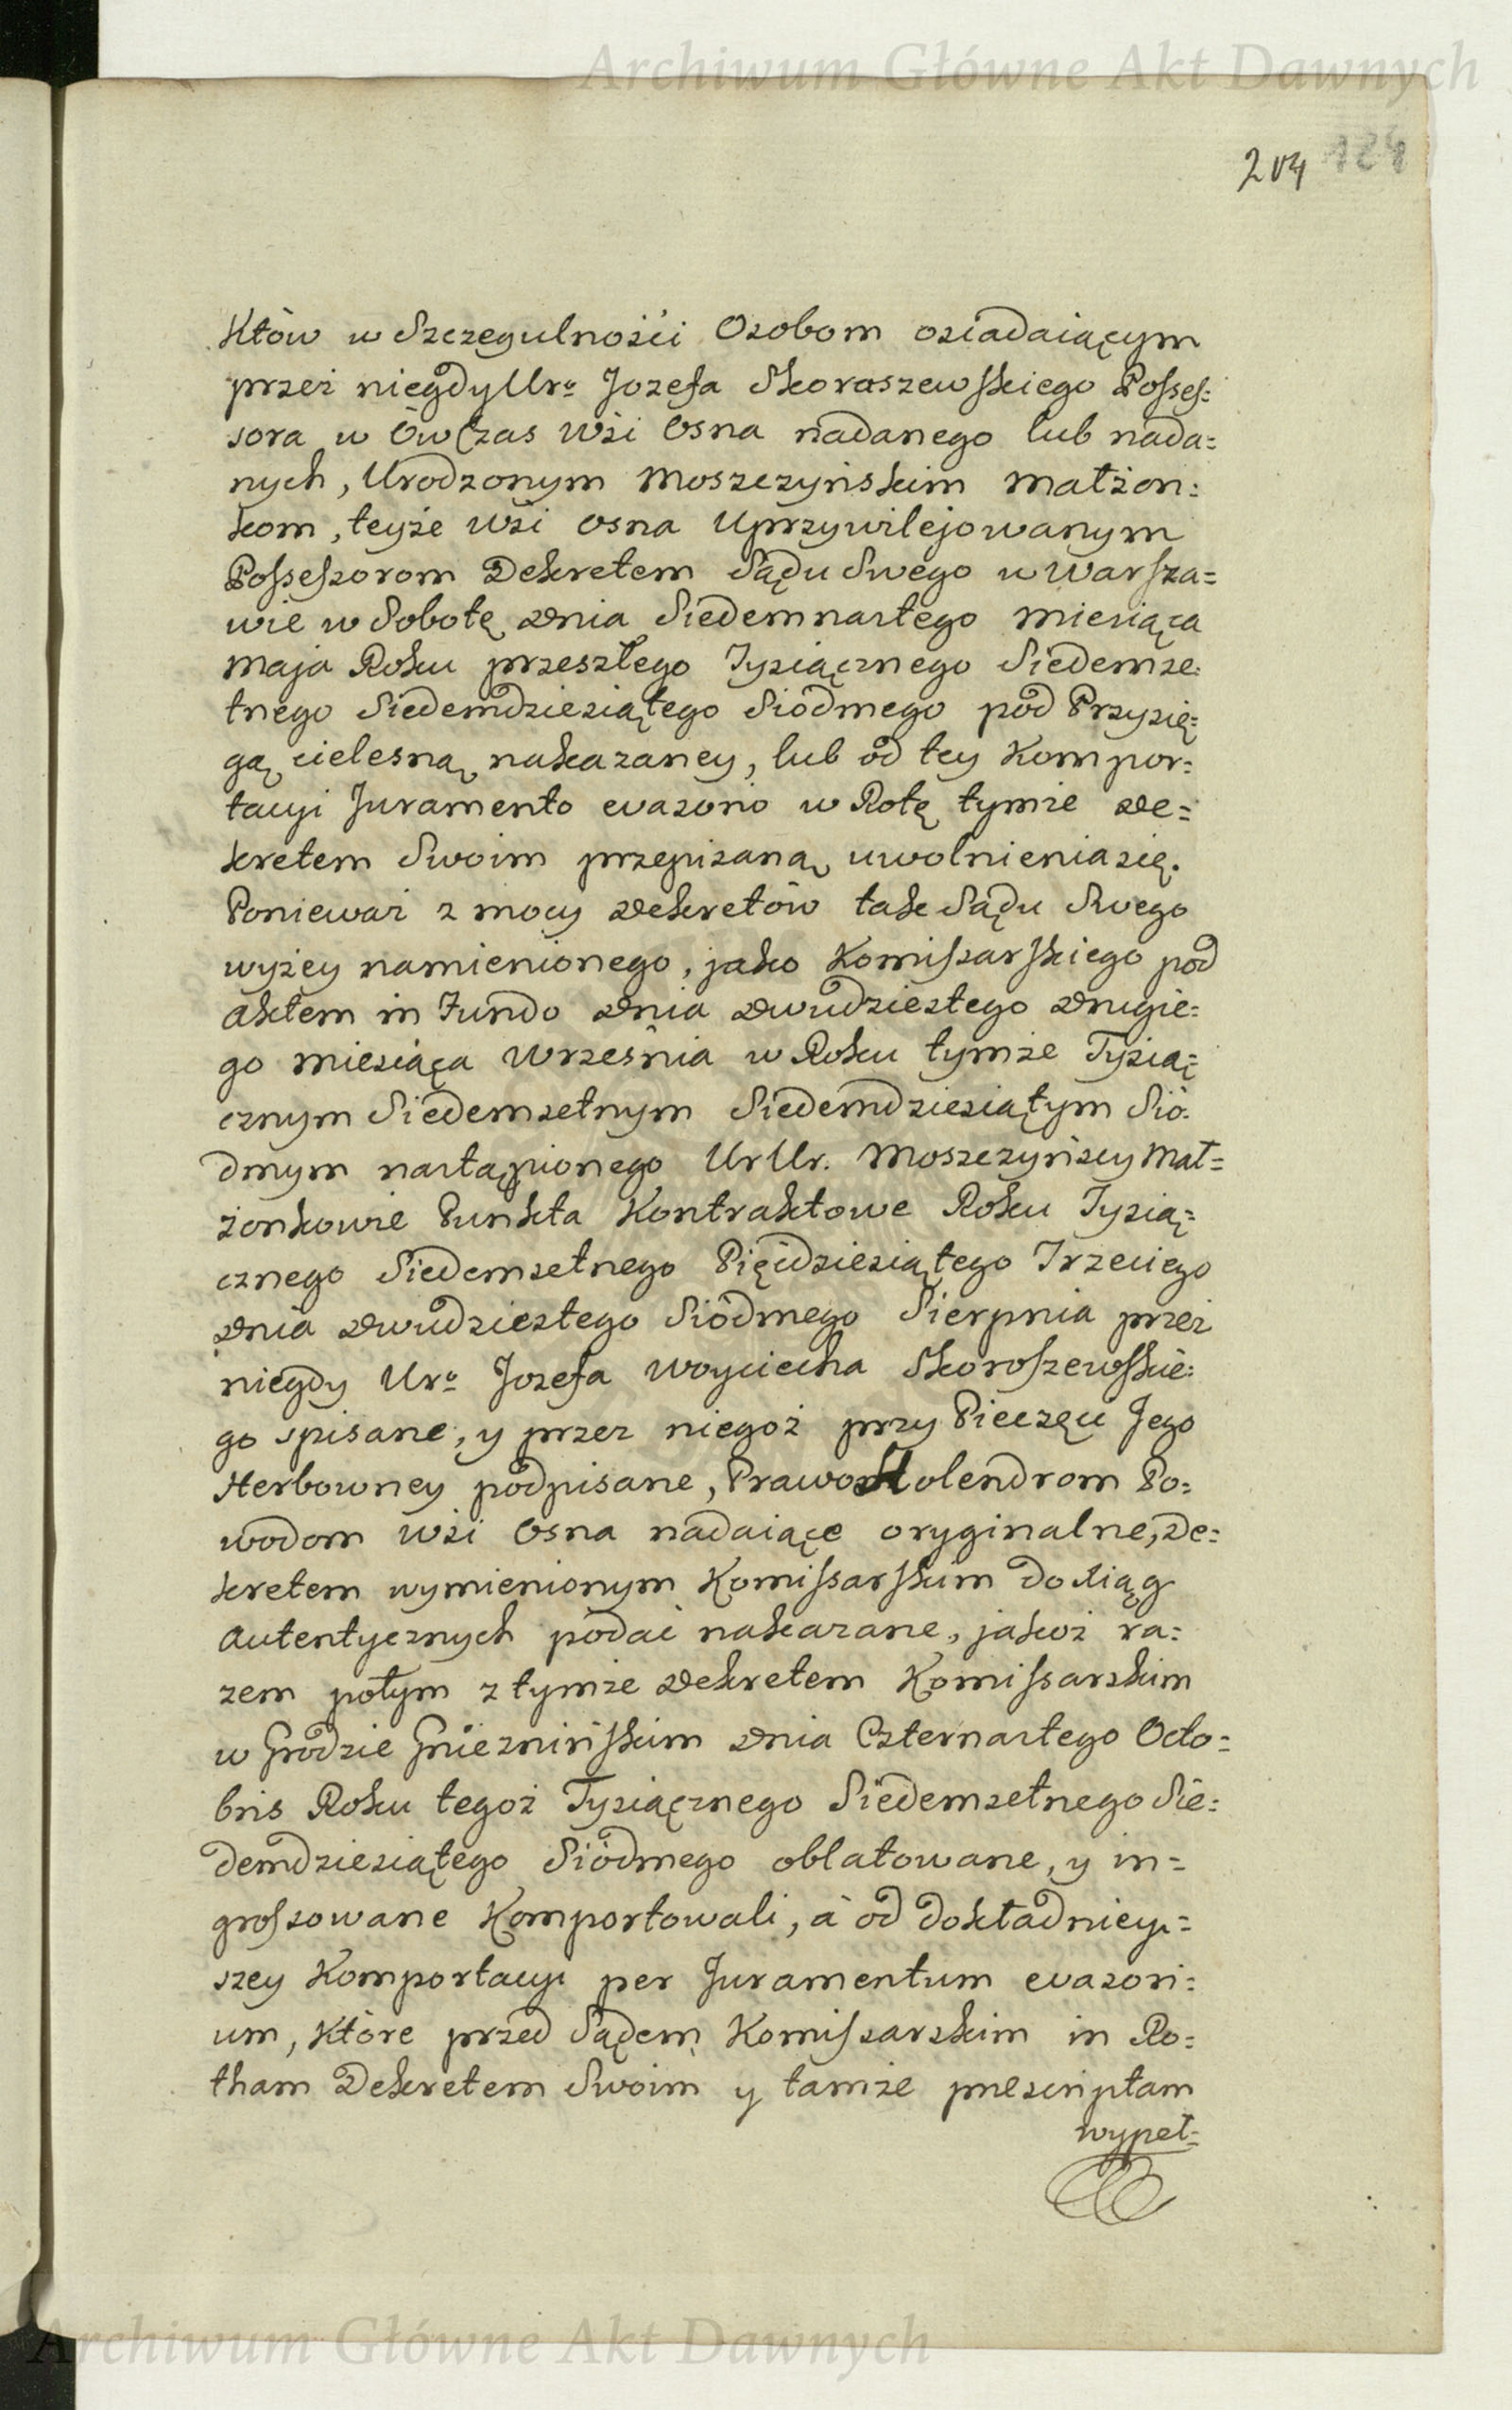 Archiwum Główne Akt Dawnych
204 124
któw w Szczegulności Osobom osiadaiącym
przez niegdy Uro Jozefa Skoraszewskiego Posses:
sora w Ówczas Wsi Osna nadanego lub nada=
nych, Urodzonym Moszczyńskim Małżon:
kom, teyże Wsi Osna Uprzywilejowanym
Possessorom Dekretem Sądu Swego w Warsza=
wie w Sobotę dnia Siedemnastego Miesiąca
Maja Roku przeszłego Tysiącznego Siedemse:
tnego Siedemdziesiątego Siodmego pod Przysię:
gą cielesną nakazaney, lub od tey Kompor:
tacyi Juramento evasorio w Rotę tymże de:
kretem Swoim przepisaną uwolnienia się.
Ponieważ z mocy dekretów tak Sądu Swego
wyżey namienionego, jako Komissarskiego pod
Aktem in Fundo dnia dwudziestego drugie:
go Miesiąca Września w Roku tymże Tysią:
cznym Siedemsetnym Siedemdziesiątym Sió:
dmym nastąpionego UrUr. Moszczyńscy Mał=
żonkowie Punkta Kontraktowe Roku Tysią:
cznego Siedemsetnego Pięćdziesiątego Trzeciego
dnia dwudziestego Siódmego Sierpnia przez
niegdy Uro Jozefa Woyciecha Skoroszewskie:
go spisane, y przez niegoż przy Pieczęci Jego
Herbowney podpisane, Prawo Holendrom Po:
wodom Wsi Osna nadaiące oryginalne, De:
kretem wymienionym Komissarskim do Xiąg
Autentycznych podać nakazane, jakoż ra:
zem potym z tymże dekretem Komissarskim
w Grodzie Gnieznińskim dnia Czternastego Octo=
bris Roku tegoż Tysiącznego Siedemsetnego Sie:
demdziesiątego Siódmego oblatowane, y in=
grossowane Komportowali, à od dokładniey:
szey Komportacyi per Juramentum evasori:
um, które przed Sądem Komissarskim in Ro:
tham Dekretem Swoim y tamże prescriptam
wypeł:
Archiwum Główne Akt Dawnych